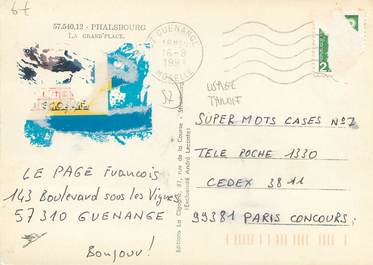 57.540.12 - PHALSBOURG
LA GRAND'PLACE.
GUENANGE
16-8
MOSELLE
2
57
SUPER MOTS CASES N°7
TELE POCHE 1330
CEDEX 38 A1
99381 PARIS CONCOURS
LE PAGE Francois
143 Boulevard sous les Vignes
57310 GUENANGE
Bonjour!
97, rue de la Course
(Exclusivité André Leconte)